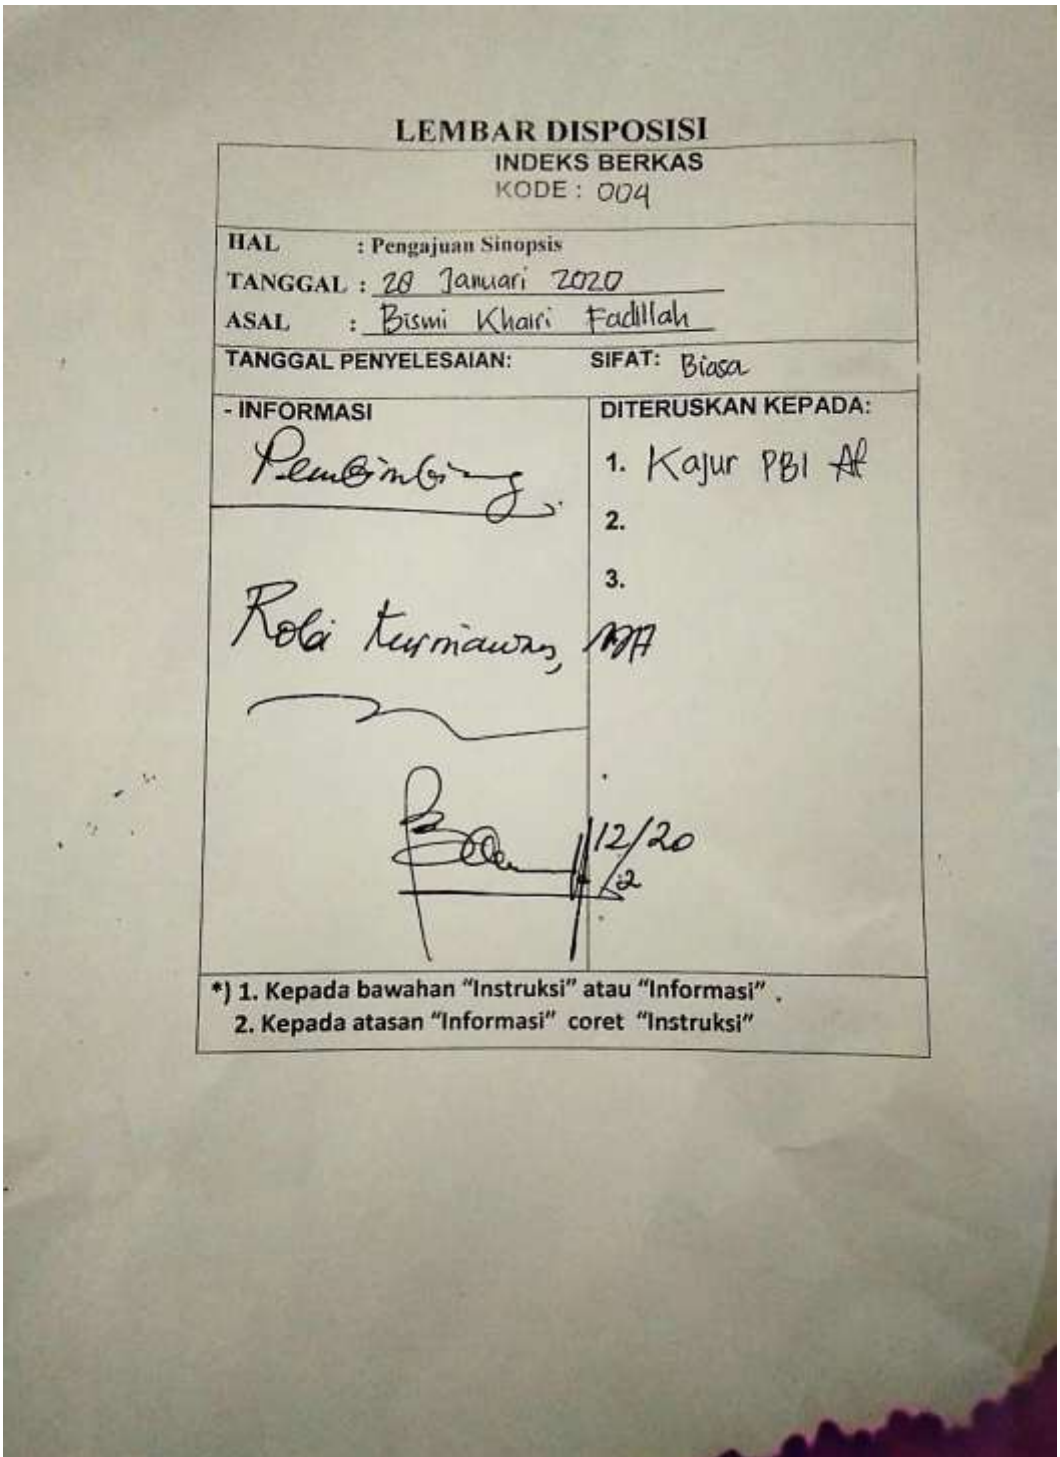 LEMBAR DISPOSISI
INDEKS BERKAS
KODE : 004
HAL : Pengajuan Sinopsis
TANGGAL : 28 Januari 2020
ASAL : Bismi Khairi Fadillah
TANGGAL PENYELESAIAN: SIFAT: Biasa
- INFORMASI DITERUSKAN KEPADA:
Pembimbing
1. Kajur PBI
2.
3.
Robi Kurniawan, MA
12/20
/2
*) 1. Kepada bawahan “Instruksi” atau “Informasi” .
2. Kepada atasan “Informasi” coret “Instruksi”